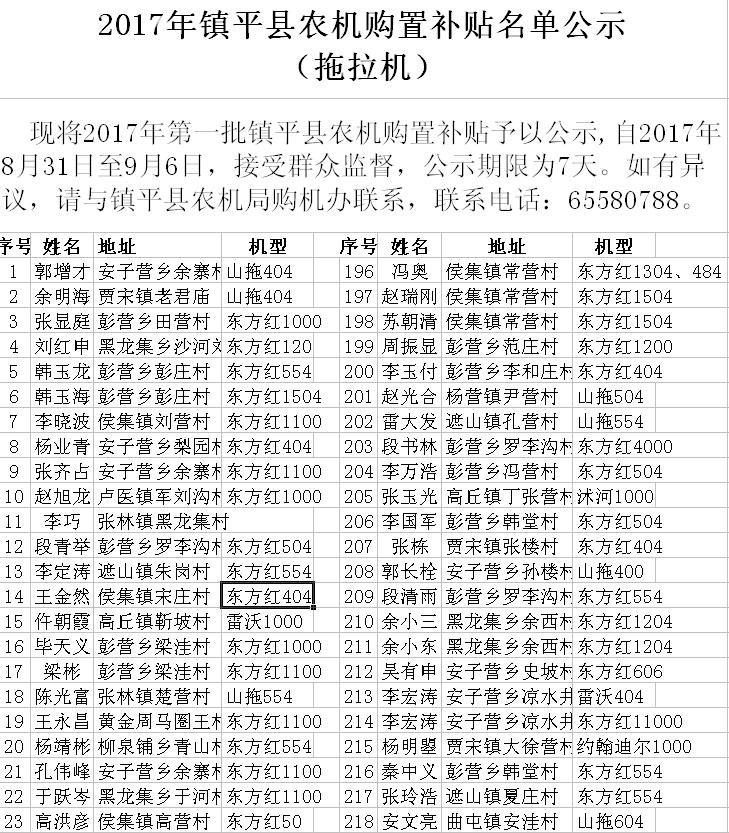 2017年镇平县农机购置补贴名单公示
（拖拉机）
现将2017年第一批镇平县农机购置补贴予以公示,自2017年
8月31日至9月6日，接受群众监督，公示期限为7天。如有异
议，请与镇平县农机局购机办联系，联系电话：65580788。
序号 姓名 地址 机型 序号 姓名 地址 机型
1 郭增才 安子营乡余寨村 山拖404 196 冯奥 侯集镇常营村 东方红1304、484
2 余明海 贾宋镇老君庙 山拖404 197 赵瑞刚 侯集镇常营村 东方红1504
3 张显庭 彭营乡田营村 东方红1000 198 苏朝清 侯集镇常营村 东方红1504
4 刘红申 黑龙集乡沙河刘 东方红120 199 周振显 彭营乡范庄村 东方红1200
5 韩玉龙 彭营乡彭庄村 东方红554 200 李玉付 彭营乡李和庄村 东方红404
6 韩玉海 彭营乡彭庄村 东方红1504 201 赵光合 杨营镇尹营村 山拖504
7 李晓波 侯集镇刘营村 东方红1100 202 雷大发 遮山镇孔营村 山拖554
8 杨业青 安子营乡梨园村 东方红404 203 段书林 彭营乡罗李沟村 东方红4000
9 张齐占 安子营乡余寨村 东方红1100 204 李万浩 彭营乡冯营村 东方红504
10 赵旭龙 卢医镇军刘沟村 东方红1000 205 张玉光 高丘镇丁张营村 沭河1000
11 李巧 张林镇黑龙集村 206 李国军 彭营乡韩堂村 东方红504
12 段青举 彭营乡罗李沟村 东方红504 207 张栋 贾宋镇张楼村 东方红404
13 李定涛 遮山镇朱岗村 东方红554 208 郭长栓 安子营乡孙楼村 山拖400
14 王金然 侯集镇宋庄村 东方红404 209 段清雨 彭营乡罗李沟村 东方红554
15 仵朝霞 高丘镇靳坡村 雷沃1000 210 余小三 黑龙集乡余西村 东方红1204
16 毕天义 彭营乡梁洼村 东方红1000 211 余小东 黑龙集乡余西村 东方红1204
17 梁彬 彭营乡梁洼村 东方红1100 212 吴有申 安子营乡史坡村 东方红606
18 陈光富 张林镇楚营村 山拖554 213 李宏涛 安子营乡凉水井 雷沃404
19 王永昌 黄金周马圈王村 东方红1100 214 李宏涛 安子营乡凉水井 东方红11000
20 杨靖彬 柳泉铺乡青山村 东方红554 215 杨明曌 贾宋镇大徐营村 约翰迪尔1000
21 孔伟峰 安子营乡余寨村 东方红1100 216 秦中义 彭营乡韩堂村 东方红554
22 于跃岑 黑龙集乡于河村 东方红1100 217 张玲浩 遮山镇夏庄村 东方红554
23 高洪彦 侯集镇高营村 东方红50 218 安文亮 曲屯镇安洼村 山拖604